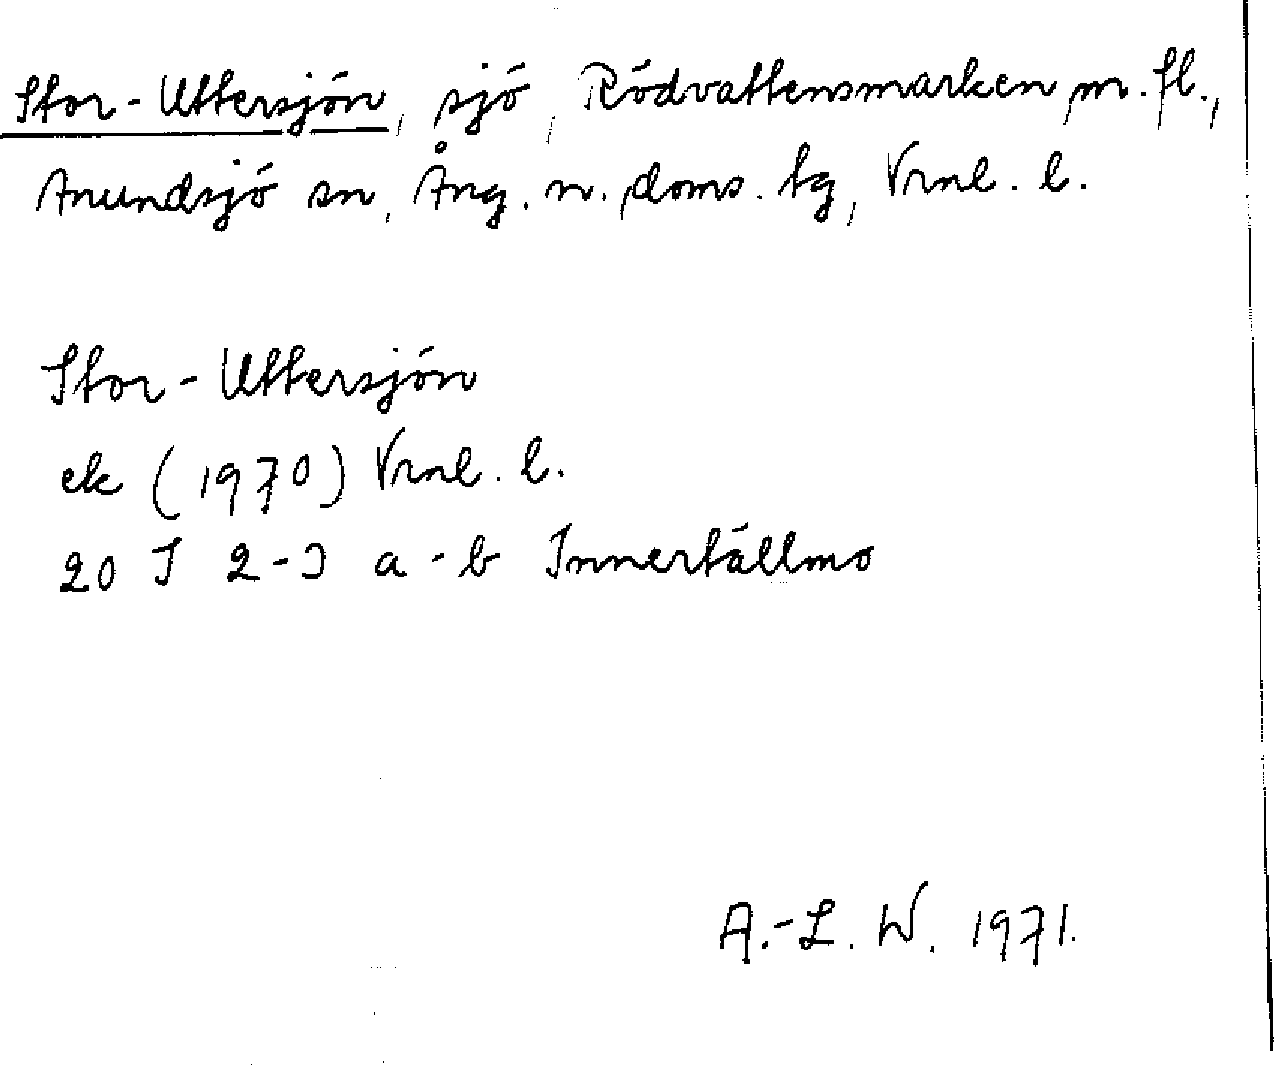 Stor-Uttersjön, sjö, Rödvattensmarken m. fl.,
Anundsjö sn, Ång. n. doms. tg, Vrnl. l.
Stor-Uttersjön
ek (1970) Vrnl. l.
20 I 2-3 a-b Innertällmo
A.-L. W. 1971.